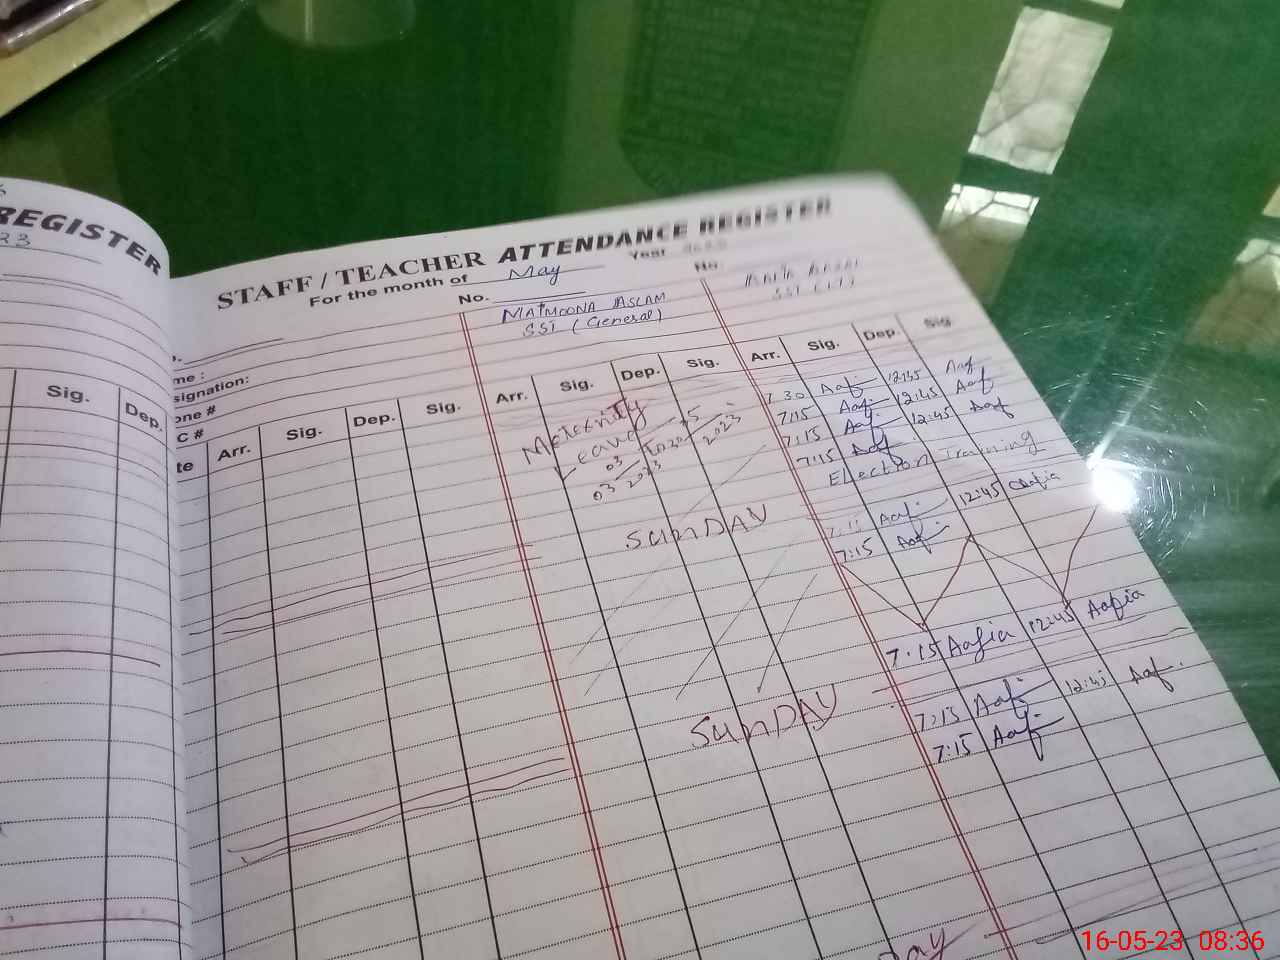 REGISTER
23
Sig.
Dep.
STAFF / TEACHER ATTENDANCE REGISTER
For the month of May Year
No.
MAIMOONA ASLAM
SST (General)
No.
me :
signation:
one #
C #
te Arr. Sig. Dep. Sig.
Arr. Sig. Dep. Sig.
Arr. Sig. Dep. Sig.
Maternity
Leave
03
03
2023
5
2023
SUNDAY
SUNDAY
7:30 Aaf 12:35 Aaf
7:15 Aaf 12:45 Aaf
7:15 Aaf 12:45 Aaf
7:15 Aaf
Election Training
7:15 Aaf 12:45 Aafia
7:15 Aaf
7:15 Aafia 12:45 Aafia
7:15 Aaf 12:45 Aaf
7:15 Aaf
16-05-23 08:36